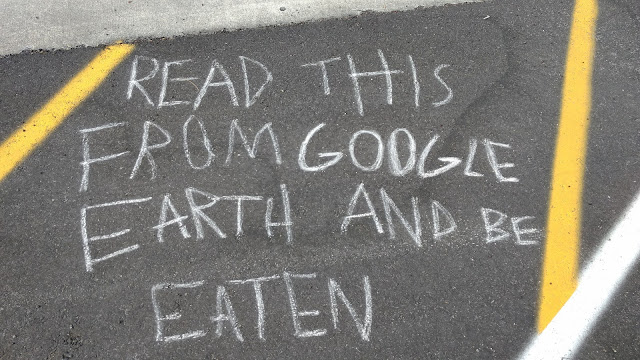 READ THIS
FROM GOOGLE
EARTH AND BE
EATEN